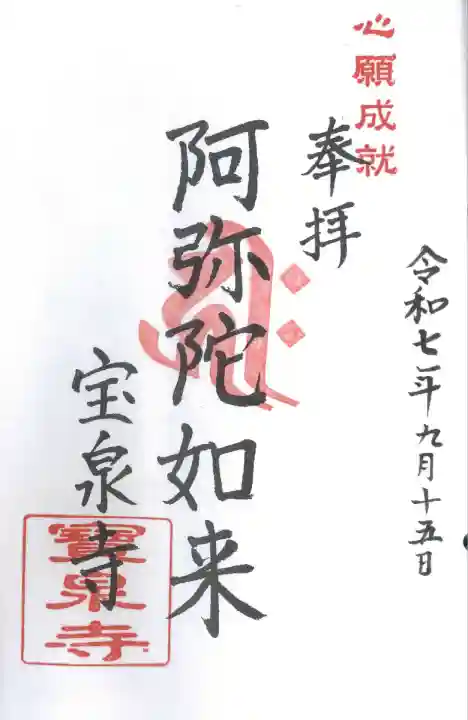 令和七年九月十五日
心願成就
奉拝
阿弥陀如来
宝泉寺
寶泉寺